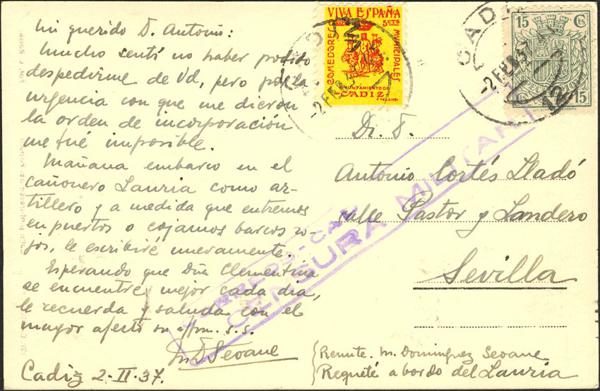 Mi querido D. Antonio:
Mucho sentí no haber podido
despedirme de Vd, pero por la
urgencia con que me dieron
la orden de incorporación
me fué imposible.
Mañana embarco en el
cañonero Lauria como ar-
tillero y a medida que entremos
en puertos o cojamos barcos ro-
jos, le escribiré nuevamente.
Esperando que Dña Clementina
se encuentre mejor cada día,
le recuerda y saluda con el
mayor afecto su affm. s.s.
M. D. Seoane
Cadiz 2-II-37.
VIVA ESPAÑA
5 CTS
COMEDORES MUNICIPALES
AYUNTAMIENTO DE
CADIZ
CADIZ
-2 FEB 37
15 Cs
15
CADIZ
-2 FEB 37
CENSURA MILITAR
Dr. D.
Antonio Cortés Lladó
calle Pastor y Landero
Sevilla
Remite. M. Dominguez Seoane
Requeté a bordo del Lauria